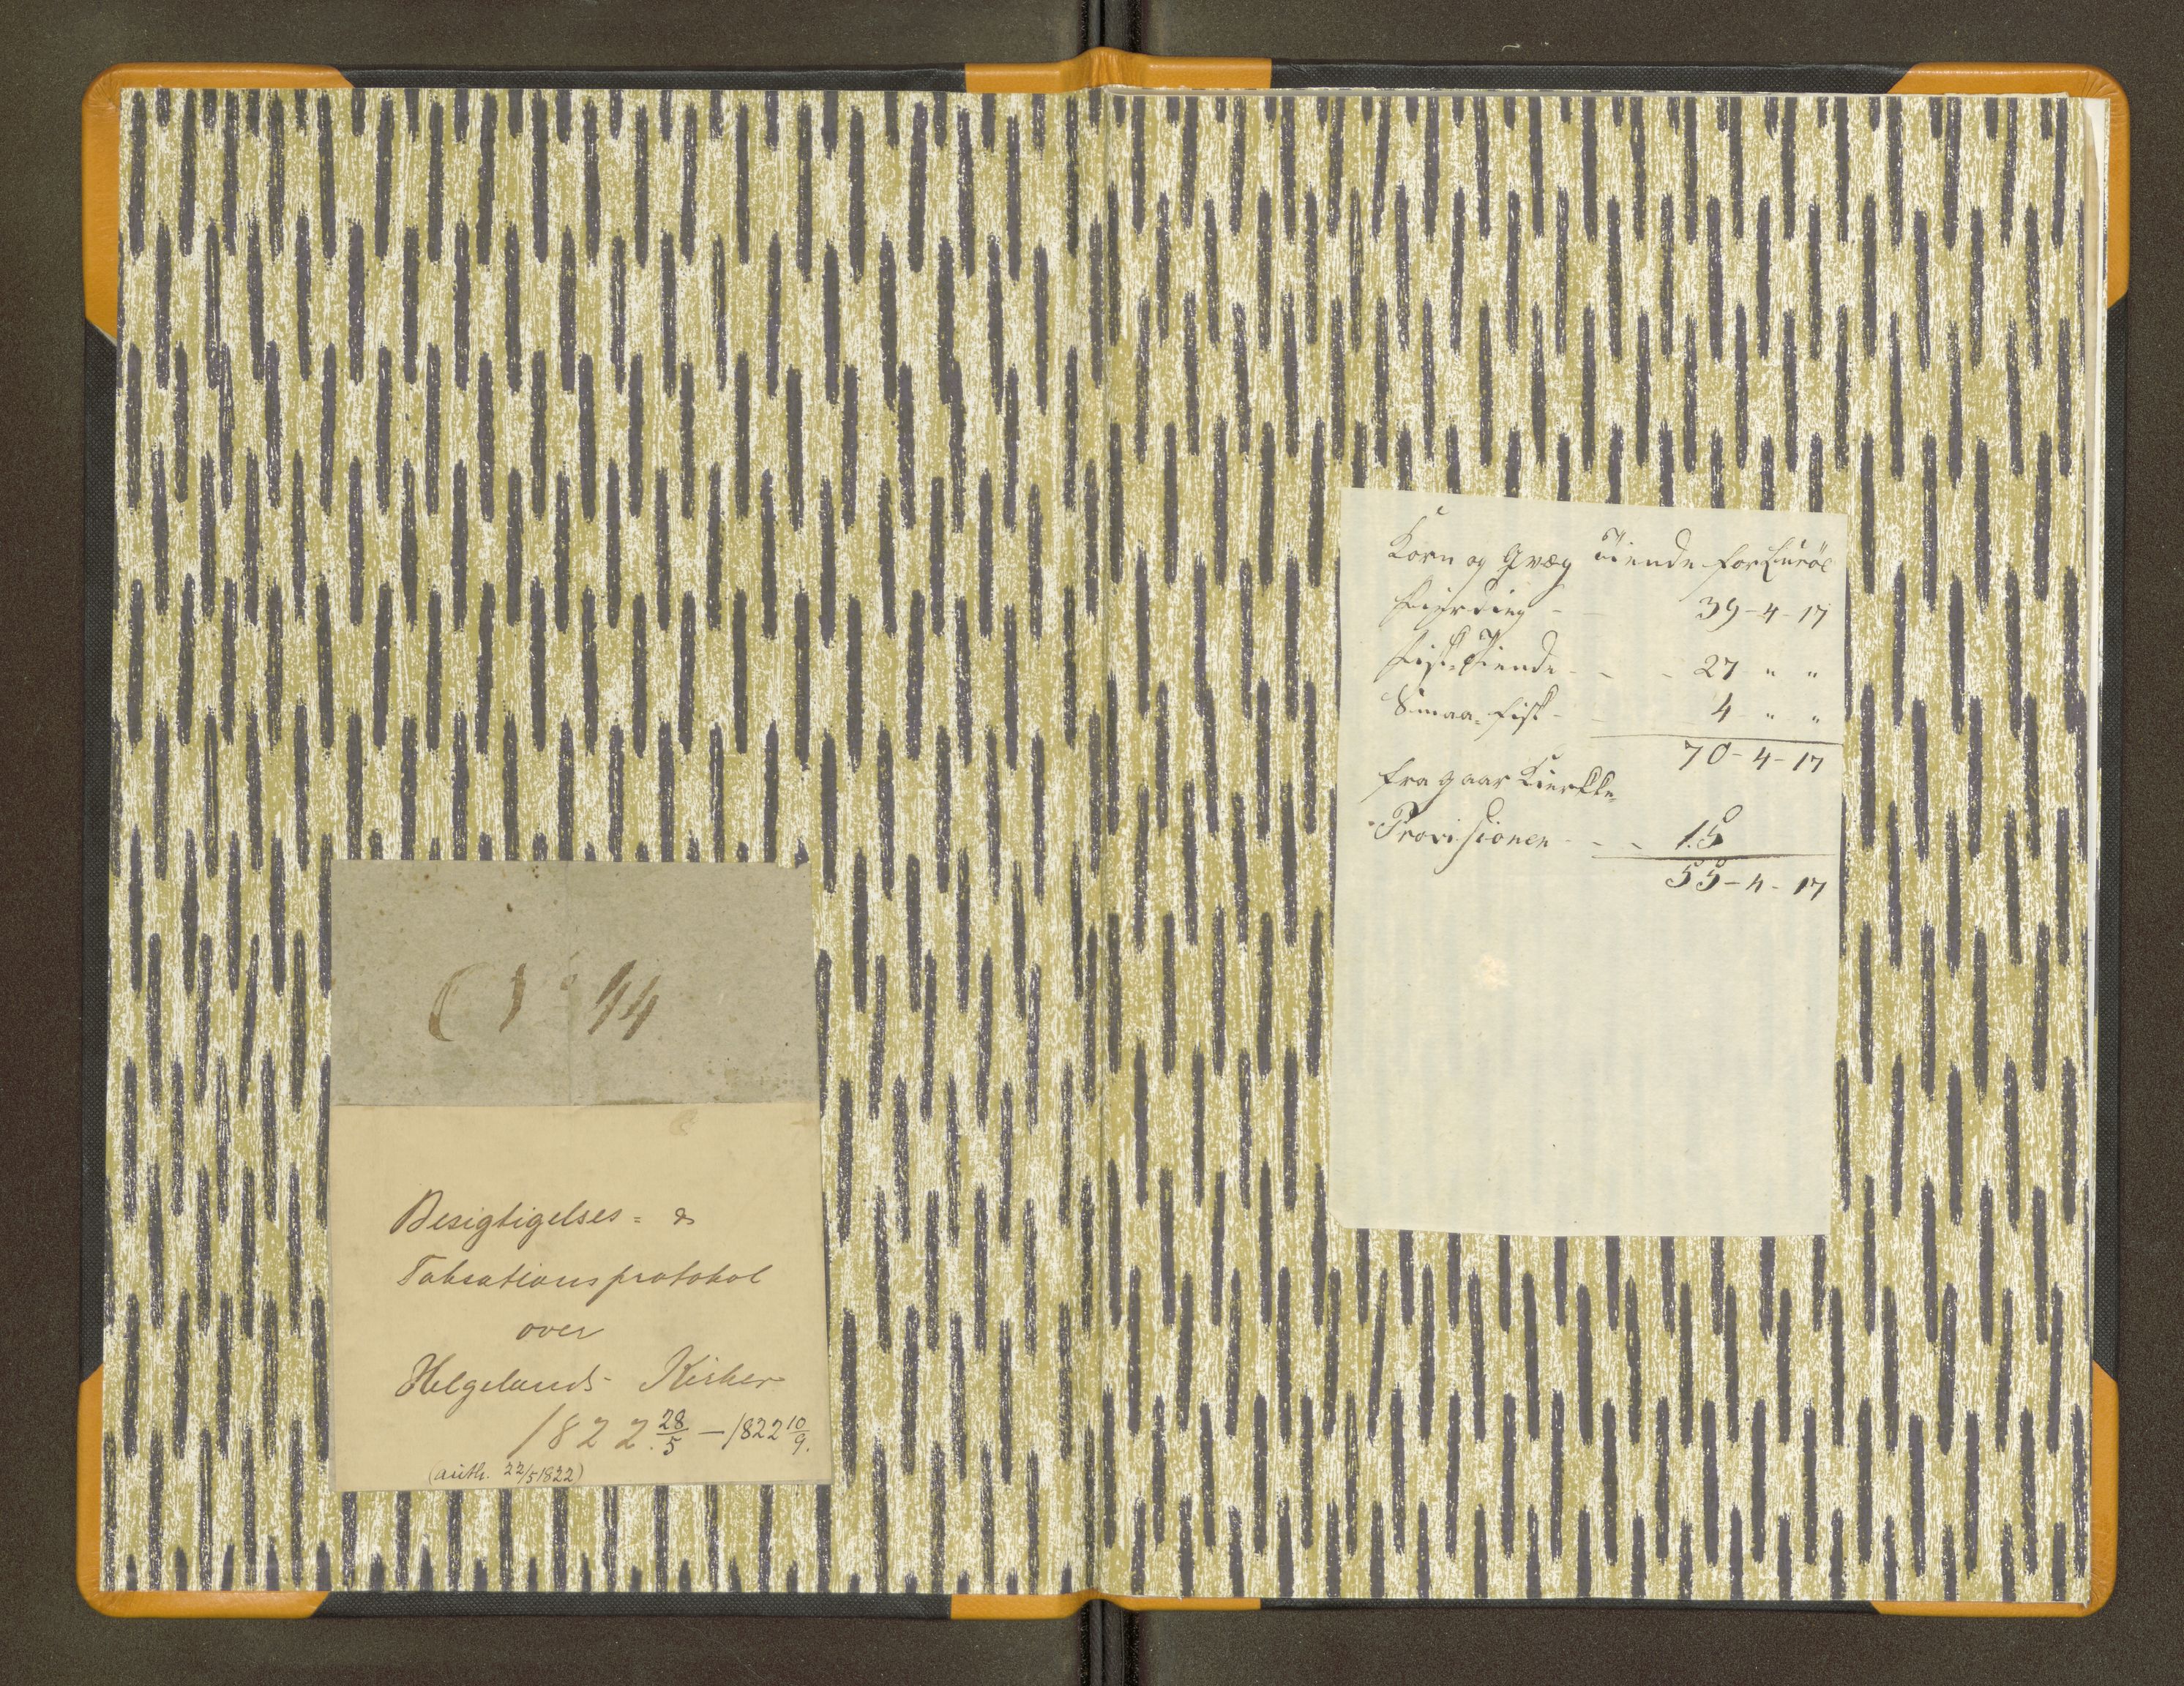 44
Besigtigelses= &
Taksationsprotokol
over
Helgelands Kirker
1822. 28/5 — 1822 10/9.
(auth. 22/5 1822)
Korn og Qvæg Tiende for Luröe
Fjerding - 39-4-17
Fisk-Tiende - - - 27 " "
Smaa-Fisk - 4 " "
70-4-17
fragaar Kierkke
Provisionen - - - 15
55-4-17